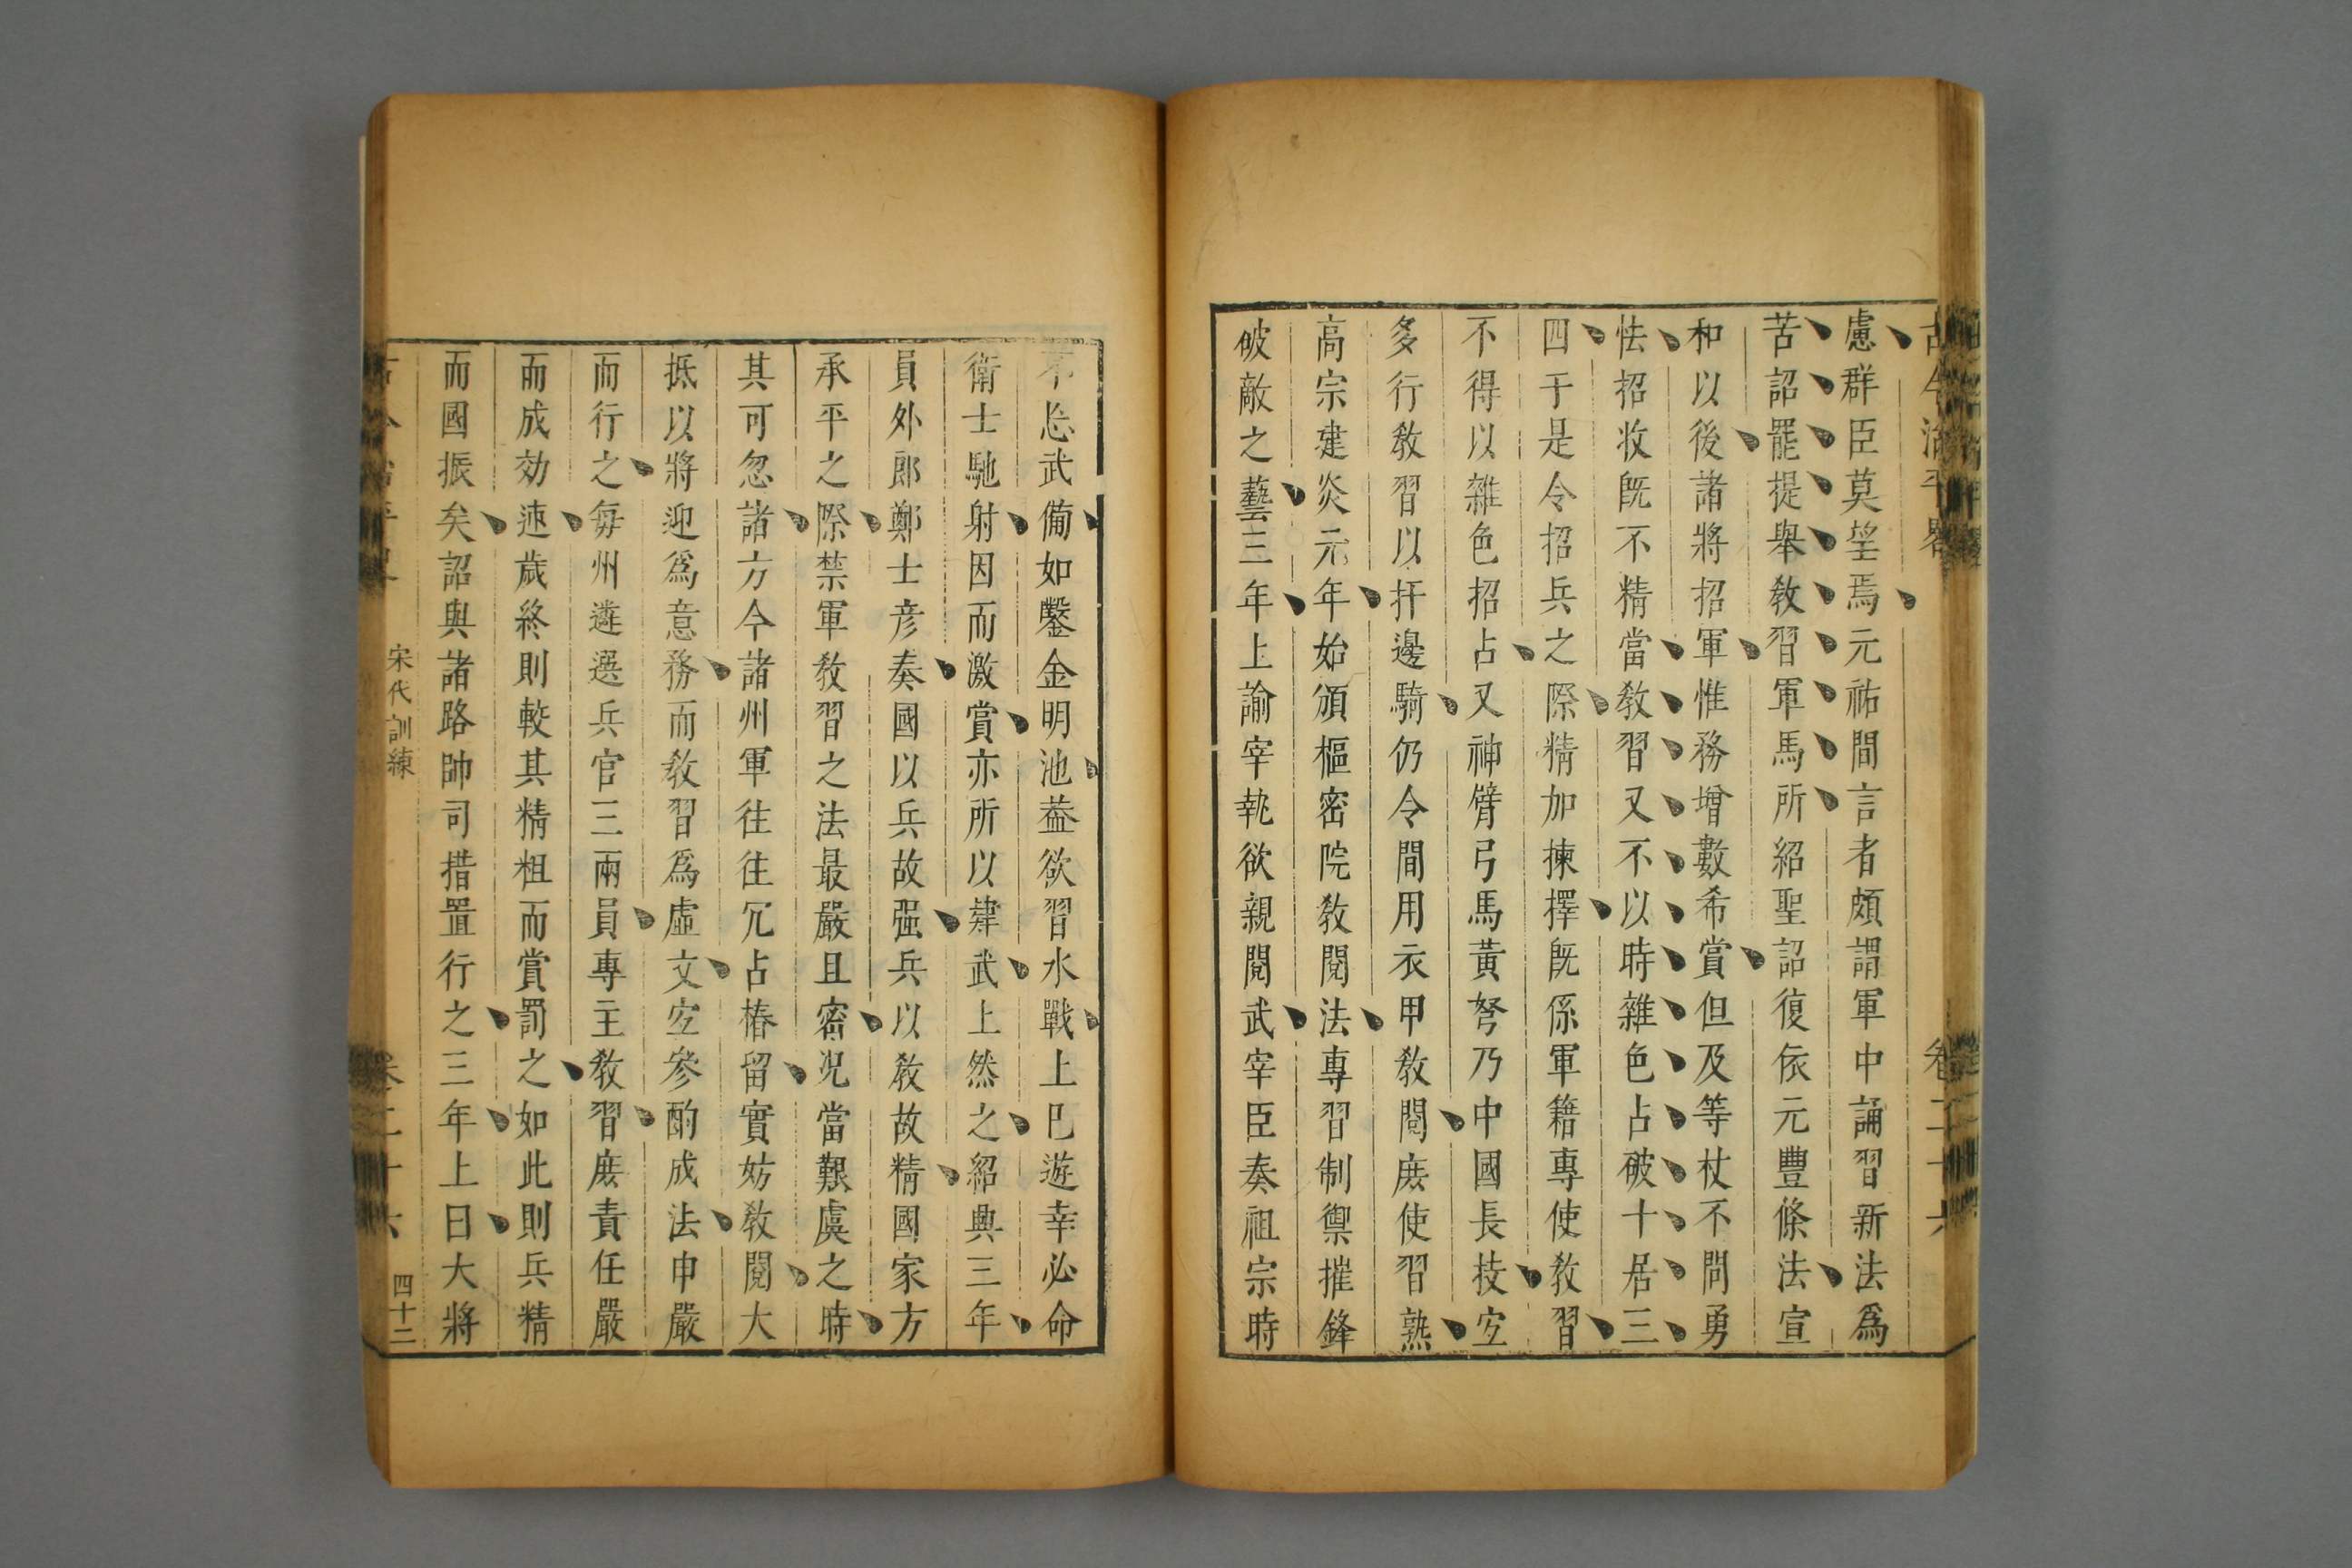 古今治平畧
卷二十六
慮群臣莫望焉元祐間言者頗謂軍中誦習新法爲
苦詔罷提舉教習軍馬所紹聖詔復依元豐條法宣
和以後諸將招軍惟務增數希賞但及等杖不問勇
怯招收旣不精當教習又不以時雜色占破十居三
四于是令招兵之際精加揀擇旣係軍籍專使教習
不得以雜色招占又神臂弓馬黃弩乃中國長技宐
多行教習以扞邊騎仍令間用衣甲教閱庶使習熟
高宗建炎元年始頒樞密院教閱法專習制禦摧鋒
破敵之藝三年上諭宰執欲親閱武宰臣奏祖宗時
不忘武備如鑿金明池葢欲習水戰上巳遊幸必命
衛士馳射因而激賞亦所以肄武上然之紹興三年
員外郎鄭士彦奏國以兵故强兵以教故精國家方
承平之際禁軍教習之法最嚴且密况當艱虞之時
其可忽諸方今諸州軍往往冗占樁留實妨教閱大
抵以將迎爲意務而教習爲虛文宐參酌成法申嚴
而行之每州遴選兵官三兩員專主教習庶責任嚴
而成効速歲終則較其精粗而賞罰之如此則兵精
而國振矣詔與諸路帥司措置行之三年上曰大將
宋代訓練
四十二